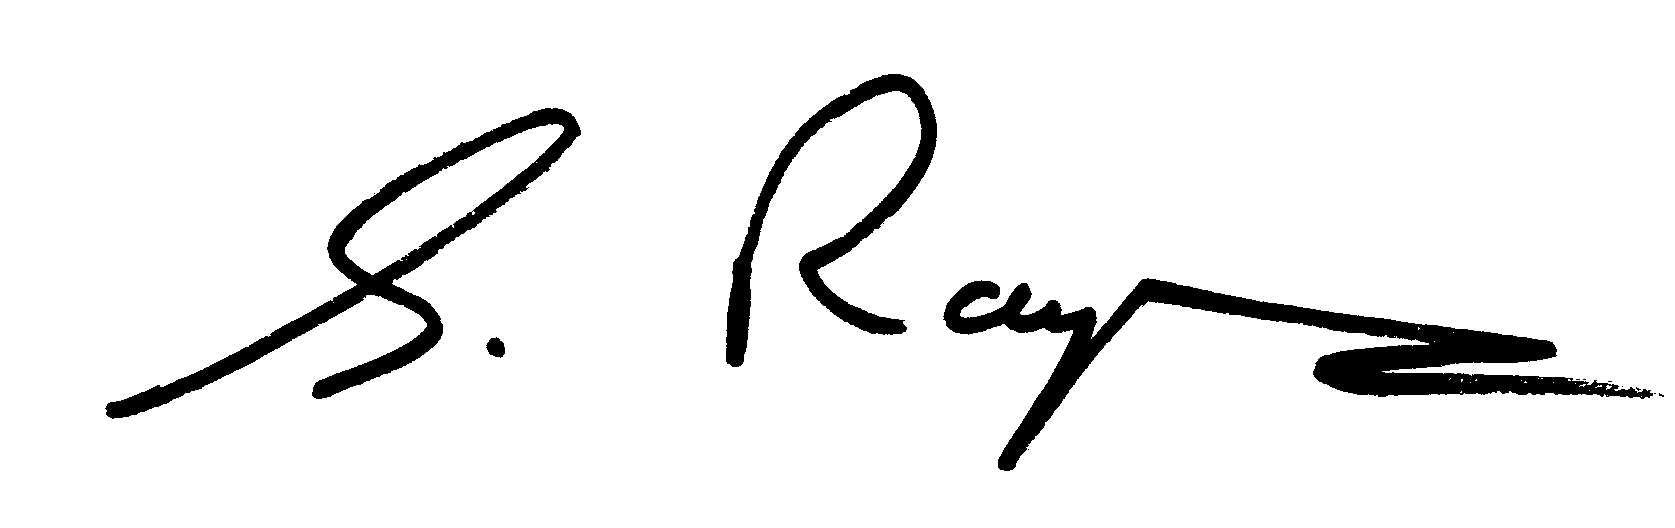 S. Ray